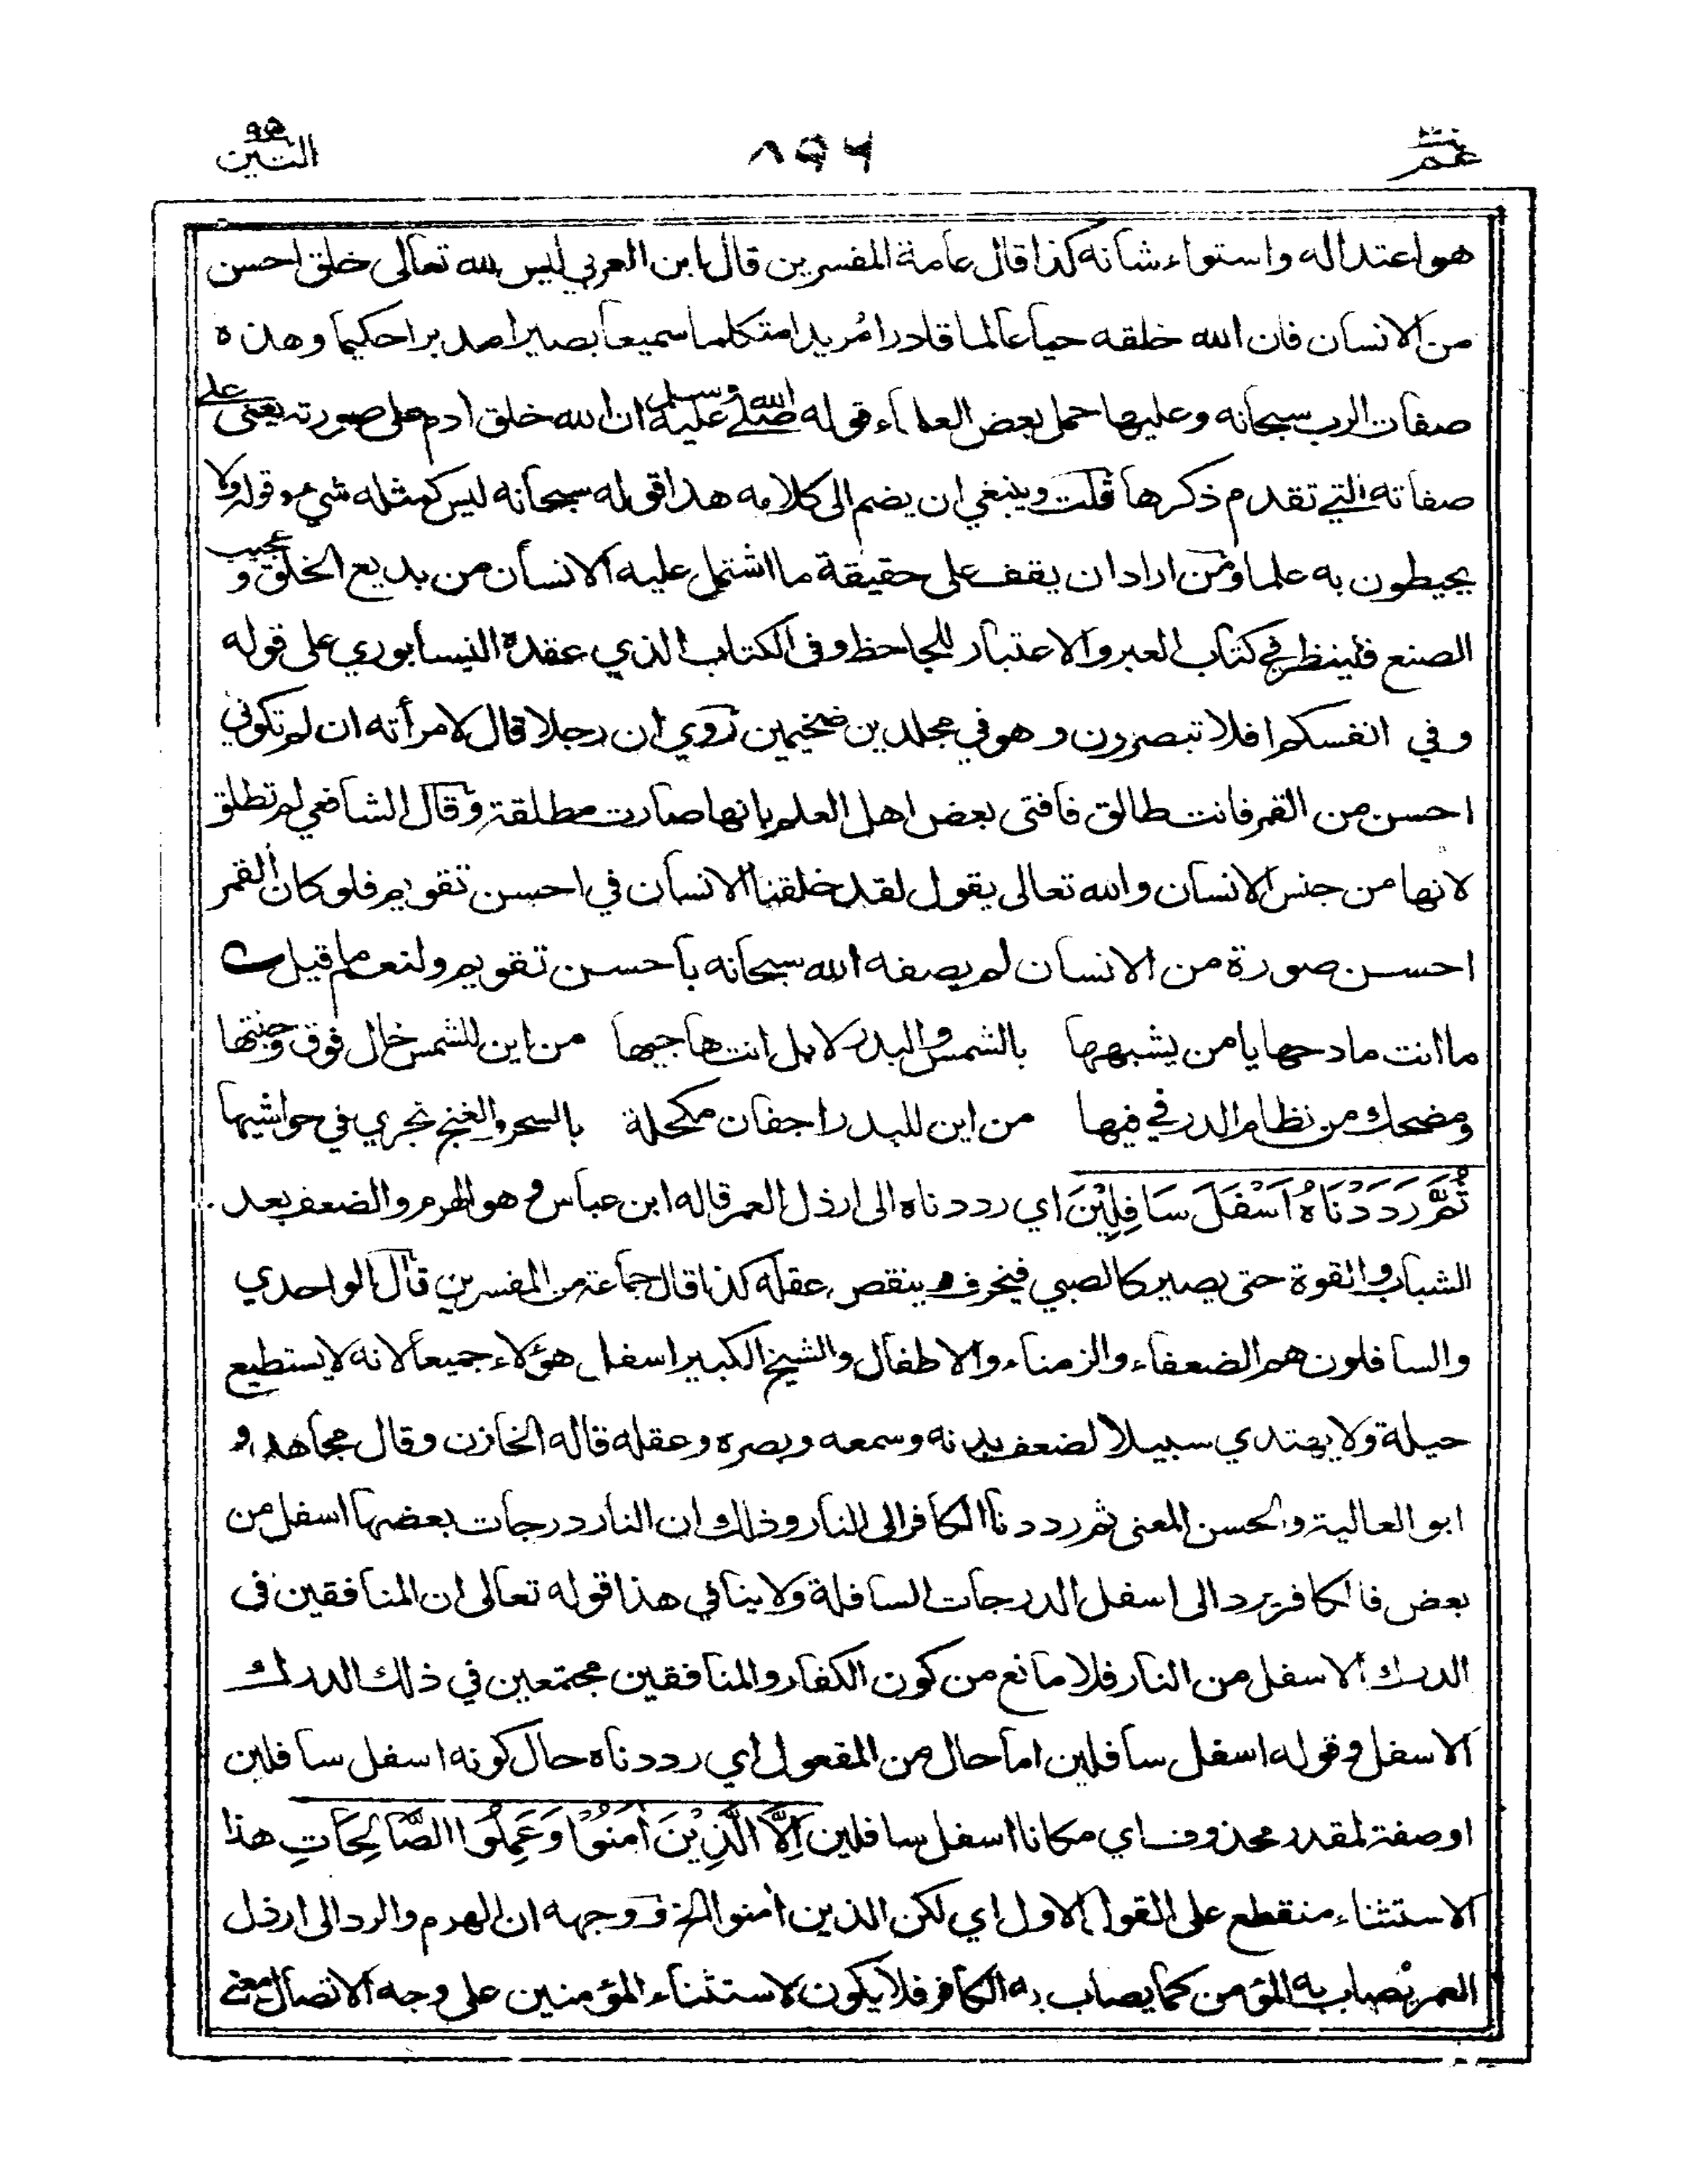 عم
٨٩٦
التين ٩٥
هو اعتداله واستواء شانه كذا قال عامة المفسرين قال ابن العربي ليس لله تعالى خلق احسن
من الانسان فان الله خلقه حيا عالما قادرا مريدا متكلما سميعا بصيرا مدبرا حكيما وهذه
صفات الرب سبحانه وعليها حمل بعض العلماء قوله صلى الله عليه وسلم ان الله خلق ادم على صورته يعني على
صفاته التي تقدم ذكرها قلت وينبغي ان يضم الى كلامه هذا قوله سبحانه ليس كمثله شيء وقوله ولا
يحيطون به علما ومن اراد ان يقف على حقيقة ما اشتمل عليه الانسان من بديع الخلق وعجيب
الصنع فلينظر في كتاب العبر والاعتبار للجاحظ وفى الكتاب الذي عقده النيسابوري على قوله
وفي انفسكم افلا تبصرون وهو في مجلدين ضخيمين روي ان رجلا قال لامرأته ان لم تكوني
احسن من القمر فانت طالق فافتى بعض اهل العلم بانها صارت مطلقة وقال الشافعي لم تطلق
لانها من جنس الانسان والله تعالى يقول لقد خلقنا الانسان في احسن تقويم فلو كان القمر
احسن صورة من الانسان لم يصفه الله سبحانه باحسن تقويم ولنعم ما قيل
ما انت مادحها يا من يشبهها بالشمس والبدر لا بل انت هاجيها من اين للشمس خال فوق وجنتها
ومضحك من نظام الدر في فيها من اين للبدر اجفان مكحلة بالسحر والغنج تجري في حواشيها
ثُمَّ رَدَدْنَاهُ اَسْفَلَ سَافِلِيْنَ اي رددناه الى ارذل العمر قاله ابن عباس وهو الهرم والضعف بعد
الشباب والقوة حتى يصير كالصبي فيخرف وينقص عقله كذا قال جماعة من المفسرين قال الواحدي
والسافلون هم الضعفاء والزمناء والاطفال والشيخ الكبير اسفل هؤلاء جميعا لانه لا يستطيع
حيلة ولا يهتدي سبيلا لضعف بدنه وسمعه وبصره وعقله قاله الخازن وقال مجاهد و
ابو العالية والحسن المعنى ثم رددنا الكافر الى النار وذلك ان النار درجات بعضها اسفل من
بعض فالكافر يرد الى اسفل الدرجات السافلة ولا ينافي هذا قوله تعالى ان المنافقين فى
الدرك الاسفل من النار فلا مانع من كون الكفار والمنافقين مجتمعين في ذلك الدرك
الاسفل وقوله اسفل سافلين اما حال من المفعول اي رددناه حال كونه اسفل سافلين
او صفة لمقدر محذوف اي مكانا اسفل سافلين اِلَّا الَّذِيْنَ اٰمَنُوْا وَعَمِلُوا الصَّالِحَاتِ هذا
الاستثناء منقطع على القول الاول اي لكن الذين اٰمنوا الخ ووجهه ان الهرم والرد الى ارذل
العمر يصاب به المؤمن كما يصاب به الكافر فلا يكون لاستثناء المؤمنين على وجه الاتصال معنى